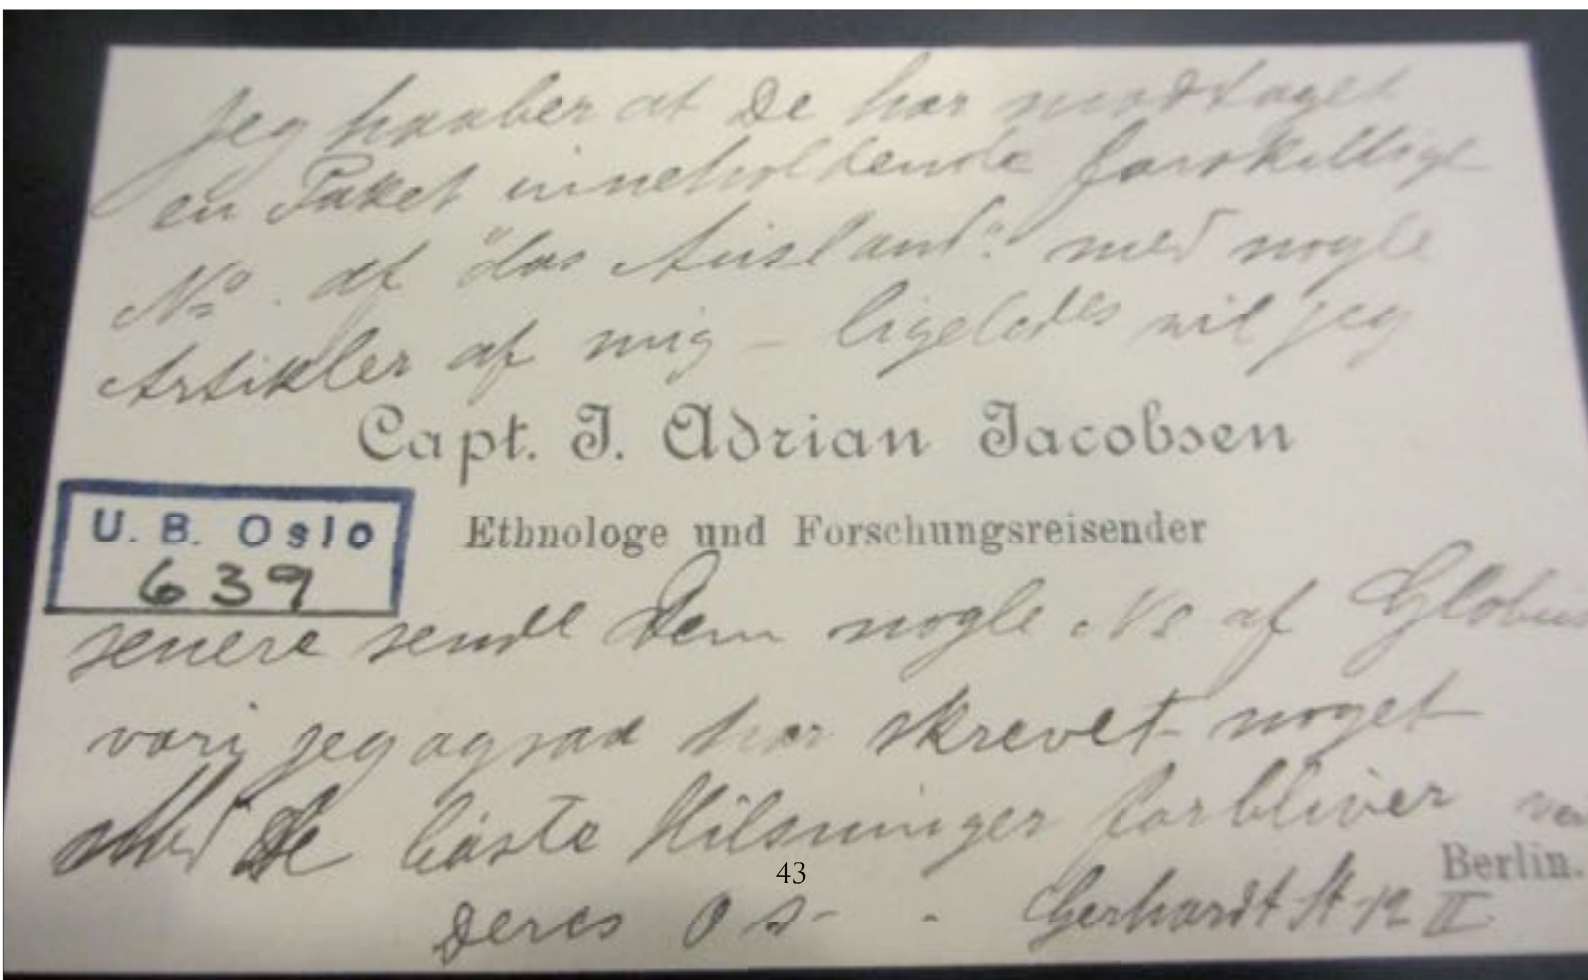 Jeg haaber at De har modtaget
en Paket inneholdende forskillige
No. af "das Ausland" med nogle
Artikler af mig - ligeledes vil jeg
Capt. J. Adrian Jacobsen
U. B. Oslo
639
Ethnologe und Forschungsreisender
senere sende Dem nogle No af Globus
vori jeg ogsaa har skrevet noget
Med De bäste Hilsninger forbliver
Berlin.
43
Deres Gerhardt St 12 II